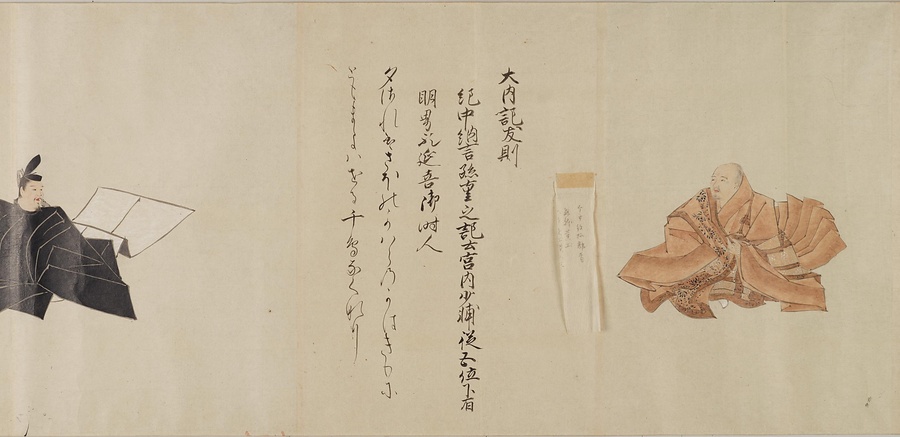 大内記友則
紀中納言孫重之記云宮内少輔従五位下有
明男也延喜御時人
夕されはさほのかはらのかはきりに
ともまとはせる千鳥なくなり